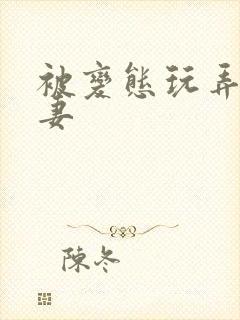 被變態玩弄
妻
陳冬